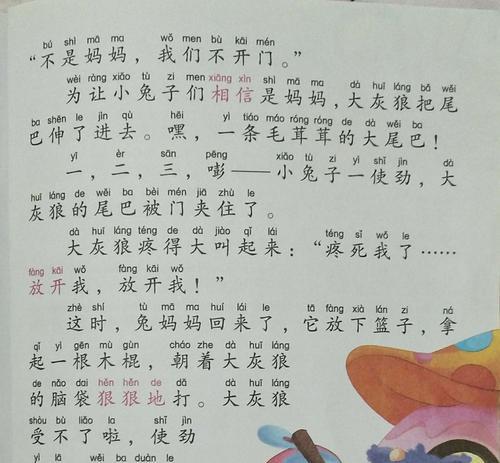 bú shì mā ma wǒ men bù kāi mén
“不是妈妈，我们不开门。”
wèi ràng xiǎo tù zi men xiāng xìn shì mā ma dà huī láng bǎ wěi
为让小兔子们相信是妈妈，大灰狼把尾
ba shēn le jìn qù hēi yì tiáo máo róng róng de dà wěi ba
巴伸了进去。嘿，一条毛茸茸的大尾巴！
yī èr sān pēng xiǎo tù zi yì shǐ jìn dà
一，二，三，嘭——小兔子一使劲，大
huī láng de wěi ba bèi mén jiā zhù le
灰狼的尾巴被门夹住了。
dà huī láng téng de dà jiào qǐ lái téng sǐ wǒ le
大灰狼疼得大叫起来：“疼死我了……
fàng kāi wǒ fàng kāi wǒ
放开我，放开我！”
zhè shí tù mā ma huí lái le tā fàng xià lán zi ná
这时，兔妈妈回来了，它放下篮子，拿
qǐ yì gēn mù gùn cháo zhe dà huī láng
起一根木棍，朝着大灰狼
de nǎo dai hěn hěn de dǎ dà huī láng
的脑袋狠狠地打。大灰狼
shòu bù liǎo la shǐ jìn
受不了啦，使劲
yì lā wěi ba duàn le